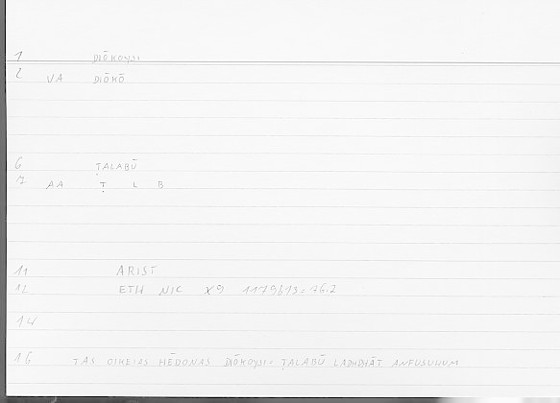 1 DIŌKOYSI
2 VA DIŌKŌ
6 ṬALABŪ
7 AA Ṭ L B
11 ARIST
12 ETH NIC X9 1179B13
14
16 TAS OIKEIAS HĒDONAS DIŌKOYSI ṬALABŪ ANFUSUHUM